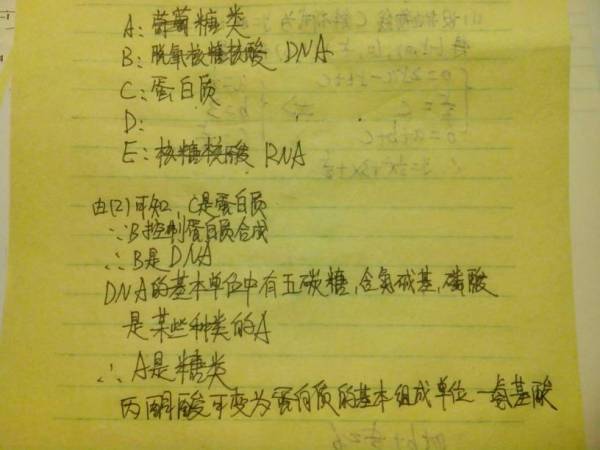 A: 葡萄糖类
B: 脱氧核糖核酸 DNA
C: 蛋白质
D:
E: 核糖核酸 RNA
由(2)可知, C是蛋白质
∵B控制蛋白质合成
∴B是DNA
DNA的基本单位中有五碳糖,含氮碱基,磷酸
是某些种类的A
∴A是糖类
丙酮酸可变为蛋白质的基本组成单位—氨基酸